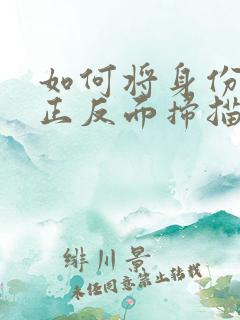 如何将身份
正反面扫描
绯川景
未经同意禁止转载